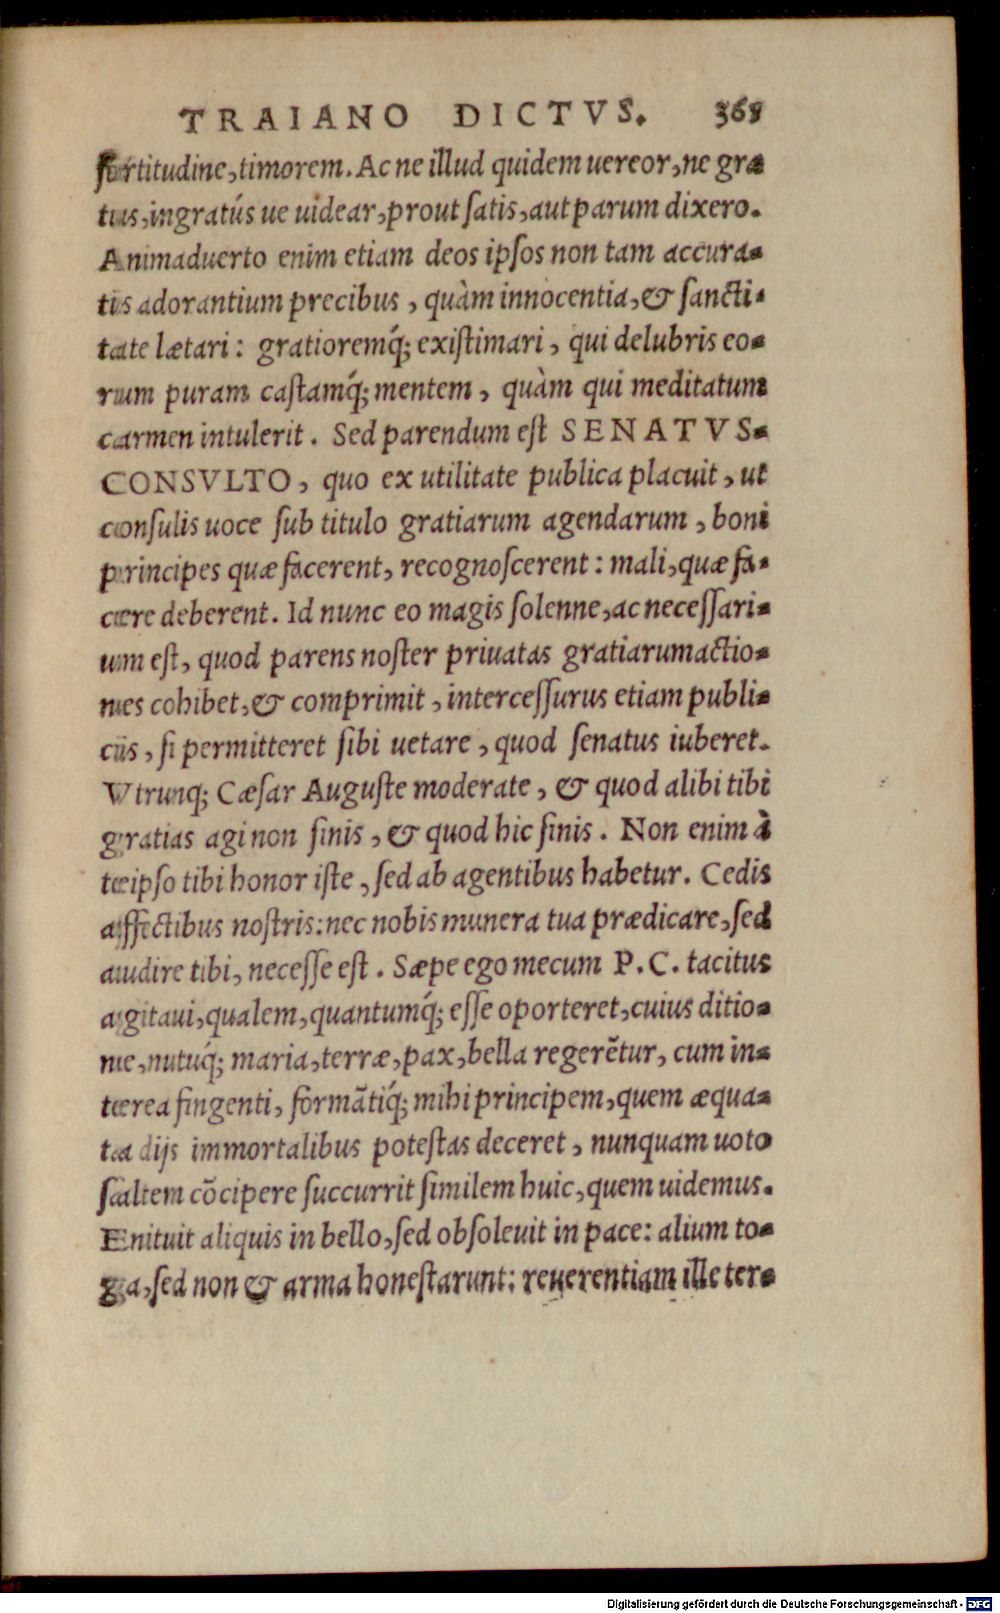 TRAIANO DICTVS. 365
fortitudine, timorem. Ac ne illud quidem uereor, ne græ
tus, ingratús ue uidear, prout satis, aut parum dixero.
Animaduerto enim etiam deos ipsos non tam accura-
tis adorantium precibus, quàm innocentia, & sancti-
tate lætari: gratioremq́; existimari, qui delubris eo-
rum puram castamq́; mentem, quàm qui meditatum
carmen intulerit. Sed parendum est SENATVS-
CONSVLTO, quo ex utilitate publica placuit, ut
consulis uoce sub titulo gratiarum agendarum, boni
principes quæ facerent, recognoscerent: mali, quæ fa-
cere deberent. Id nunc eo magis solenne, ac necessari-
um est, quod parens noster priuatas gratiarumactio-
nes cohibet, & comprimit, intercessurus etiam publi-
cis, si permitteret sibi uetare, quod senatus iuberet.
Vtrunq; Cæsar Auguste moderate, & quod alibi tibi
gratias agi non sinis, & quod hic sinis. Non enim à
teipso tibi honor iste, sed ab agentibus habetur. Cedis
affectibus nostris: nec nobis munera tua prædicare, sed
audire tibi, necesse est. Sæpe ego mecum P. C. tacitus
agitaui, qualem, quantumq́; esse oporteret, cuius ditio-
ne, nutuq́; maria, terræ, pax, bella regerẽtur, cum in-
terea fingenti, formãtiq́; mihi principem, quem æqua-
ta dijs immortalibus potestas deceret, nunquam uoto
saltem cõcipere succurrit similem huic, quem uidemus.
Enituit aliquis in bello, sed obsoleuit in pace: alium to-
ga, sed non & arma honestarunt: reuerentiam ille ter-
Digitalisierung gefördert durch die Deutsche Forschungsgemeinschaft - DFG